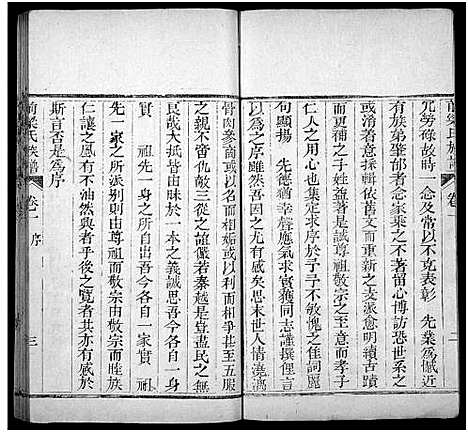 前梁氏族譜 卷一 二
冗勞碌故時一念及常以不克表彰 先業為憾近
有族弟肇郁者念家乘之不可亡也留心博訪恐世系之
或失濫觴也於是尋其宗而重新之支派愈明續古蹟
之更補之子甚嘉此舉是誠尊祖敬宗之意而大有望于
仁人之用心者也因求序於予予不敏愧之佳詞麗
句顯揚 先德猶幸聲應氣求實獲同志謹撰俚言
以為之序雖然吾因之尤有感矣思末世人情澆漓
骨肉參商或以相妬或以利而相爭甚至五服
之親亦同仇敵三從之誼儼若秦越是豈盡民之無
良哉大抵皆由昧於一本之義誠思吾今各自一身
實 祖先一身之所自出吾今各自一家實 祖
先一家之所派別則由尊祖而敬宗由敬宗而睦族
仁讓之風有不油然興者乎後之覽者其亦有感於
斯言否是為序
前梁氏族譜 卷一 序 三